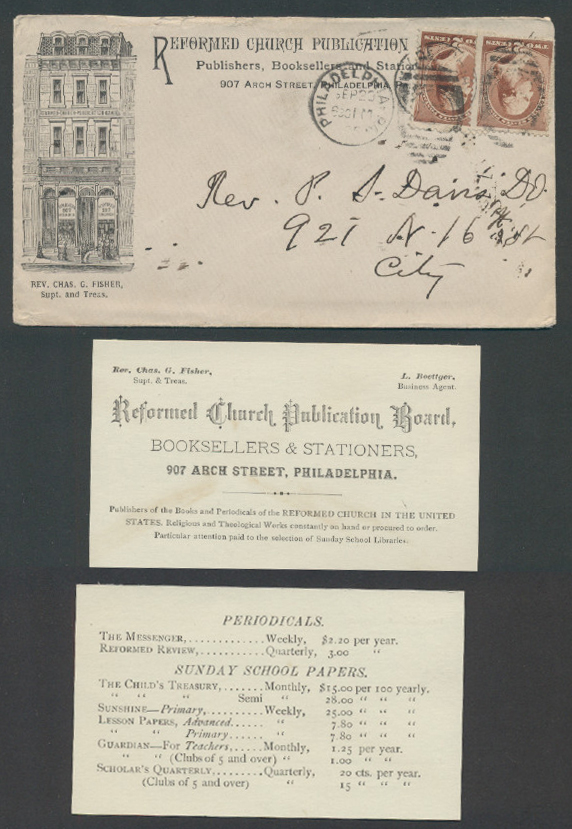 REFORMED CHURCH PUBLICATION
Publishers, Booksellers and Station
907 ARCH STREET, PHILADELPHIA
PHILADELPHIA, PA.
SEP 23
TWO
TWO
Rev. P. S. Davis DD
927 N-16 St
City
REV. CHAS. G. FISHER,
Supt. and Treas.
Rev. Chas. G. Fisher,
Supt. & Treas.
L. Boettger,
Business Agent.
Reformed Church Publication Board,
BOOKSELLERS & STATIONERS,
907 ARCH STREET, PHILADELPHIA.
Publishers of the Books and Periodicals of the REFORMED CHURCH IN THE UNITED
STATES. Religious and Theological Works constantly on hand or procured to order.
Particular attention paid to the selection of Sunday School Libraries.
PERIODICALS.
THE MESSENGER,............Weekly, $2.20 per year.
REFORMED REVIEW,...........Quarterly, 3.00 "
SUNDAY SCHOOL PAPERS.
THE CHILD'S TREASURY,.......Monthly, $15.00 per 100 yearly.
" " " Semi " 28.00 " " "
SUNSHINE—Primary,...........Weekly, 25.00 " " "
LESSON PAPERS, Advanced...... " 7.80 " " "
" " Primary...... " 7.80 " " "
GUARDIAN—For Teachers,......Monthly, 1.25 per year.
" " (Clubs of 5 and over) " 1.00 " "
SCHOLAR'S QUARTERLY,........Quarterly, 20 cts. per year.
(Clubs of 5 and over) " 15 " " "